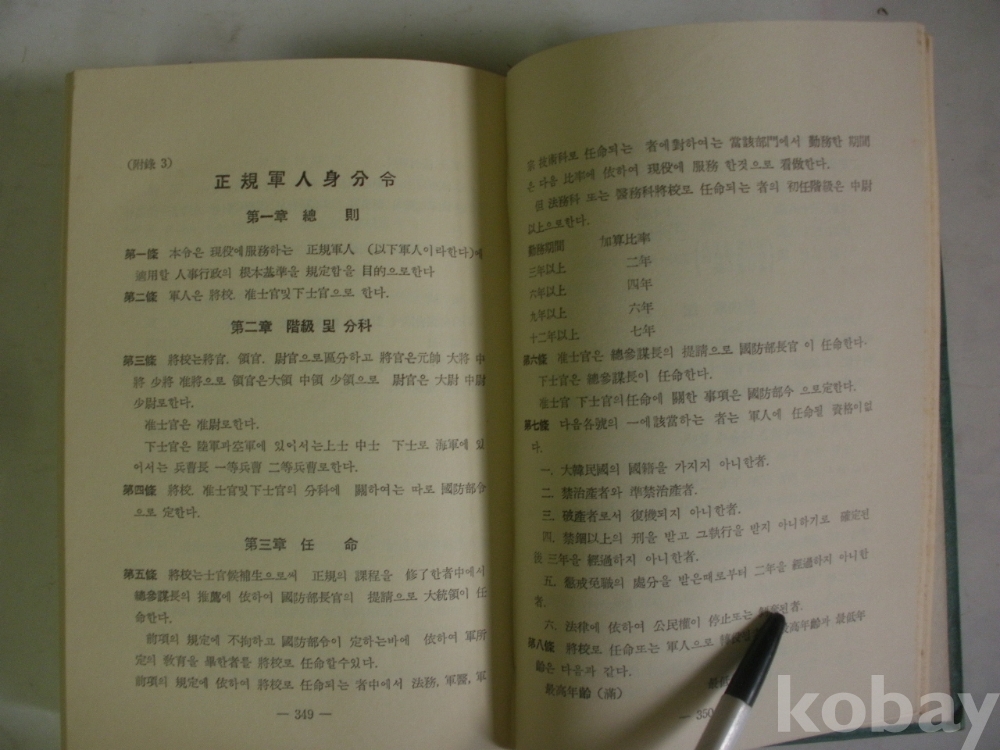 (附錄 3)
正規軍人身分令
第一章 總 則
第一條 本令은 現役에服務하는 正規軍人 (以下軍人이라한다)에
適用할 人事行政의 根本基準을 規定함을 目的으로한다
第二條 軍人은 將校. 准士官및下士官으로 한다.
第二章 階級 및 分科
第三條 將校는將官. 領官. 尉官으로區分하고 將官은元帥 大將 中
將 少將 准將으로 領官은大領 中領 少領으로 尉官은 大尉 中尉
少尉로한다.
准士官은 准尉로한다.
下士官은 陸軍과空軍에 있어서는上士 中士 下士로 海軍에 있
어서는 兵曹長 一等兵曹 二等兵曹로한다.
第四條 將校. 准士官및下士官의 分科에 關하여는 따로 國防部令
으로 定한다.
第三章 任 命
第五條 將校는士官候補生으로써 正規의 課程을 修了한者中에서
總參謀長의 推薦에 依하여 國防部長官의 提請으로 大統領이 任
命한다.
前項의 規定에 不拘하고 國防部令이 定하는바에 依하여 軍所
定의 敎育을 畢한者를 將校로 任命할수있다.
前項의 規定에 依하여 將校로 任命되는 者中에서 法務, 軍醫, 軍
— 349 —
技術科로 任命되는 者에對하여는 當該部門에서 勤務한 期間
은 다음 比率에 依하여 現役에 服務 한것으로 看做한다.
但 法務科 또는 醫務科將校로 任命되는 者의 初任階級은 中尉
以上으로한다.
勤務期間 加算比率
三年以上 二年
六年以上 四年
九年以上 六年
十二年以上 七年
第六條 准士官은 總參謀長의 提請으로 國防部長官 이 任命한다.
下士官은 總參謀長이 任命한다.
准士官 下士官의任命에 關한 事項은 國防部令 으로定한다.
第七條 다음各號의 一에該當하는 者는 軍人에 任命될 資格이없
다.
一. 大韓民國의 國籍을 가지지 아니한者.
二. 禁治產者와 準禁治產者.
三. 破產者로서 復權되지 아니한者.
四. 禁錮以上의 刑을 받고 그執行을 받지 아니하기로 確定된
後 三年을 經過하지 아니한者.
五. 懲戒免職의 處分을 받은때로부터 二年을 經過하지 아니한
者.
六. 法律에 依하여 公民權이 停止또는 者.
第八條 將校로 任命또는 軍人으로 最高年齡과 最低年
齡은 다음과 같다.
最高年齡 (滿)
— 350
kobay